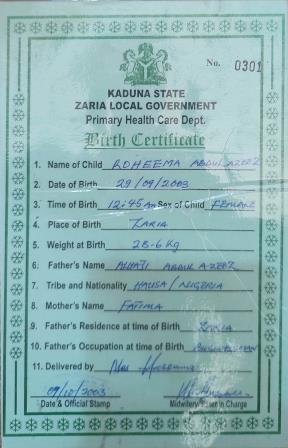 No. 0301
KADUNA STATE
ZARIA LOCAL GOVERNMENT
Primary Health Care Dept.
Birth Certificate
1. Name of Child ROHEEMA ABDULAZEEZ
2. Date of Birth 29/09/2003
3. Time of Birth 12:45 Am Sex of Child FEMALE
4. Place of Birth ZARIA
5. Weight at Birth 28-6 Kg
6. Father's Name ALHAJI ABDULAZEEZ
7. Tribe and Nationality HAUSA / NIGERIA
8. Mother's Name FATIMA
9. Father's Residence at time of Birth ZARIA
10. Father's Occupation at time of Birth BUSINESSMAN
11. Delivered by
09/10/2003
Date & Official Stamp Midwifery Sister in Charge